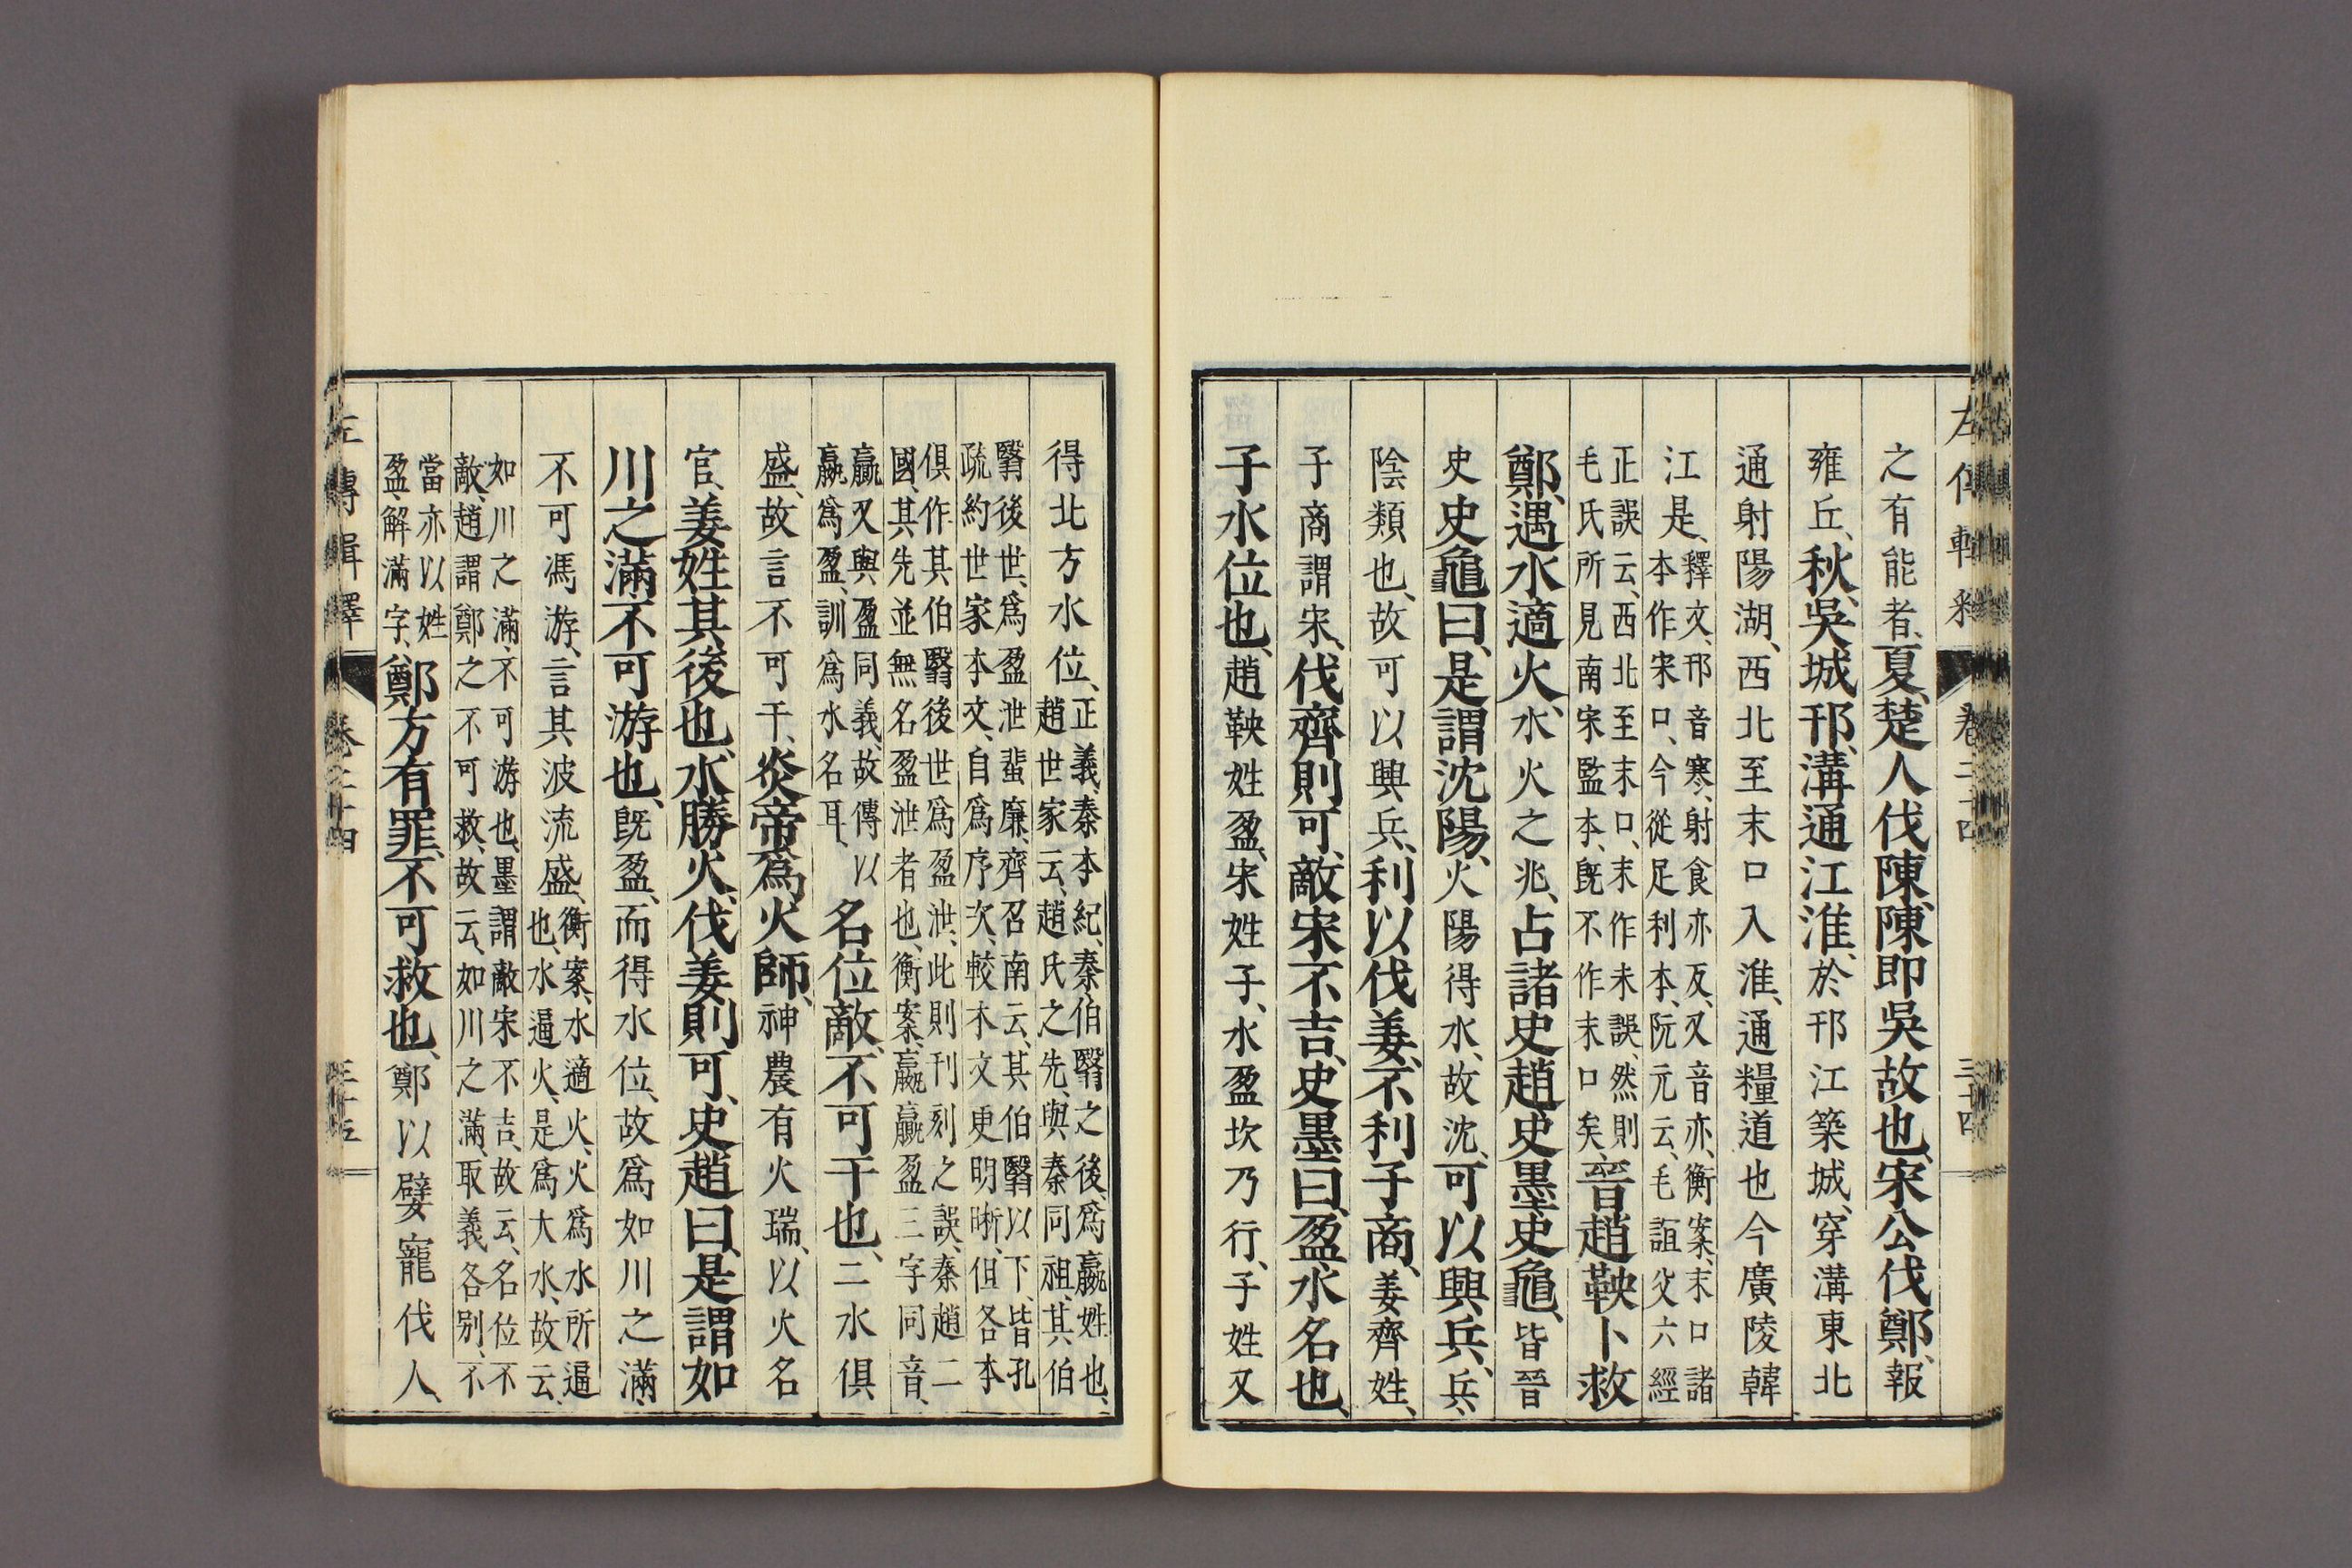 左傳輯釋 卷二十四 三十四
之有能者、夏、楚人伐陳、陳即吳故也、宋公伐鄭、報
雍丘、秋、吳城邗、溝通江淮、於邗江築城、穿溝東北
通射陽湖、西北至末口入淮、通糧道也今廣陵韓
江是、釋文、邗音寒、射食亦反、又音亦、衡案、末口諸
本作宋口、今從足利本、阮元云、毛誼父六經
正誤云、西北至末口、末作未誤、然則
毛氏所見南宋監本、既不作末口矣、晉趙鞅卜救
鄭、遇水適火、水火之兆、占諸史趙史墨史龜、皆晉
史史龜曰、是謂沈陽、火陽得水、故沈、可以興兵、兵、
陰類也、故可以興兵、利以伐姜、不利子商、姜齊姓、
子商謂宋、伐齊則可、敵宋不吉、史墨曰、盈、水名也、
子水位也、趙鞅姓盈、宋姓子、水盈坎乃行、子姓又
得北方水位、正義、秦本紀、秦伯翳之後、爲嬴姓也、
趙世家云、趙氏之先、與秦同祖、其伯
翳後世、爲盈泄蜚廉、齊召南云、其伯翳以下、皆孔
疏約世家本文、自爲序次、較本文更明晰、但各本
俱作其伯翳後世爲盈泄、此則刊刻之誤、秦趙二
國、其先並無名盈泄者也、衡案、嬴嬴盈三字同音、
嬴又與盈同義、故傳以
嬴爲盈、訓爲水名耳、名位敵、不可干也、二水俱
盛、故言不可干、炎帝爲火師、神農有火瑞、以火名
官、姜姓其後也、水勝火、伐姜則可、史趙曰、是謂如
川之滿、不可游也、既盈、而得水位、故爲如川之滿、
不可馮游、言其波流盛、衡案、水適火、火爲水所逼
也、水逼火、是爲大水、故云、
如川之滿、不可游也、墨謂敵宋不吉、故云、名位不
敵、趙謂鄭之不可救、故云、如川之滿、取義各別、不
當亦以姓
盈、解滿字、鄭方有罪、不可救也、鄭以嬖寵伐人、
左傳輯釋 卷二十四 三十五